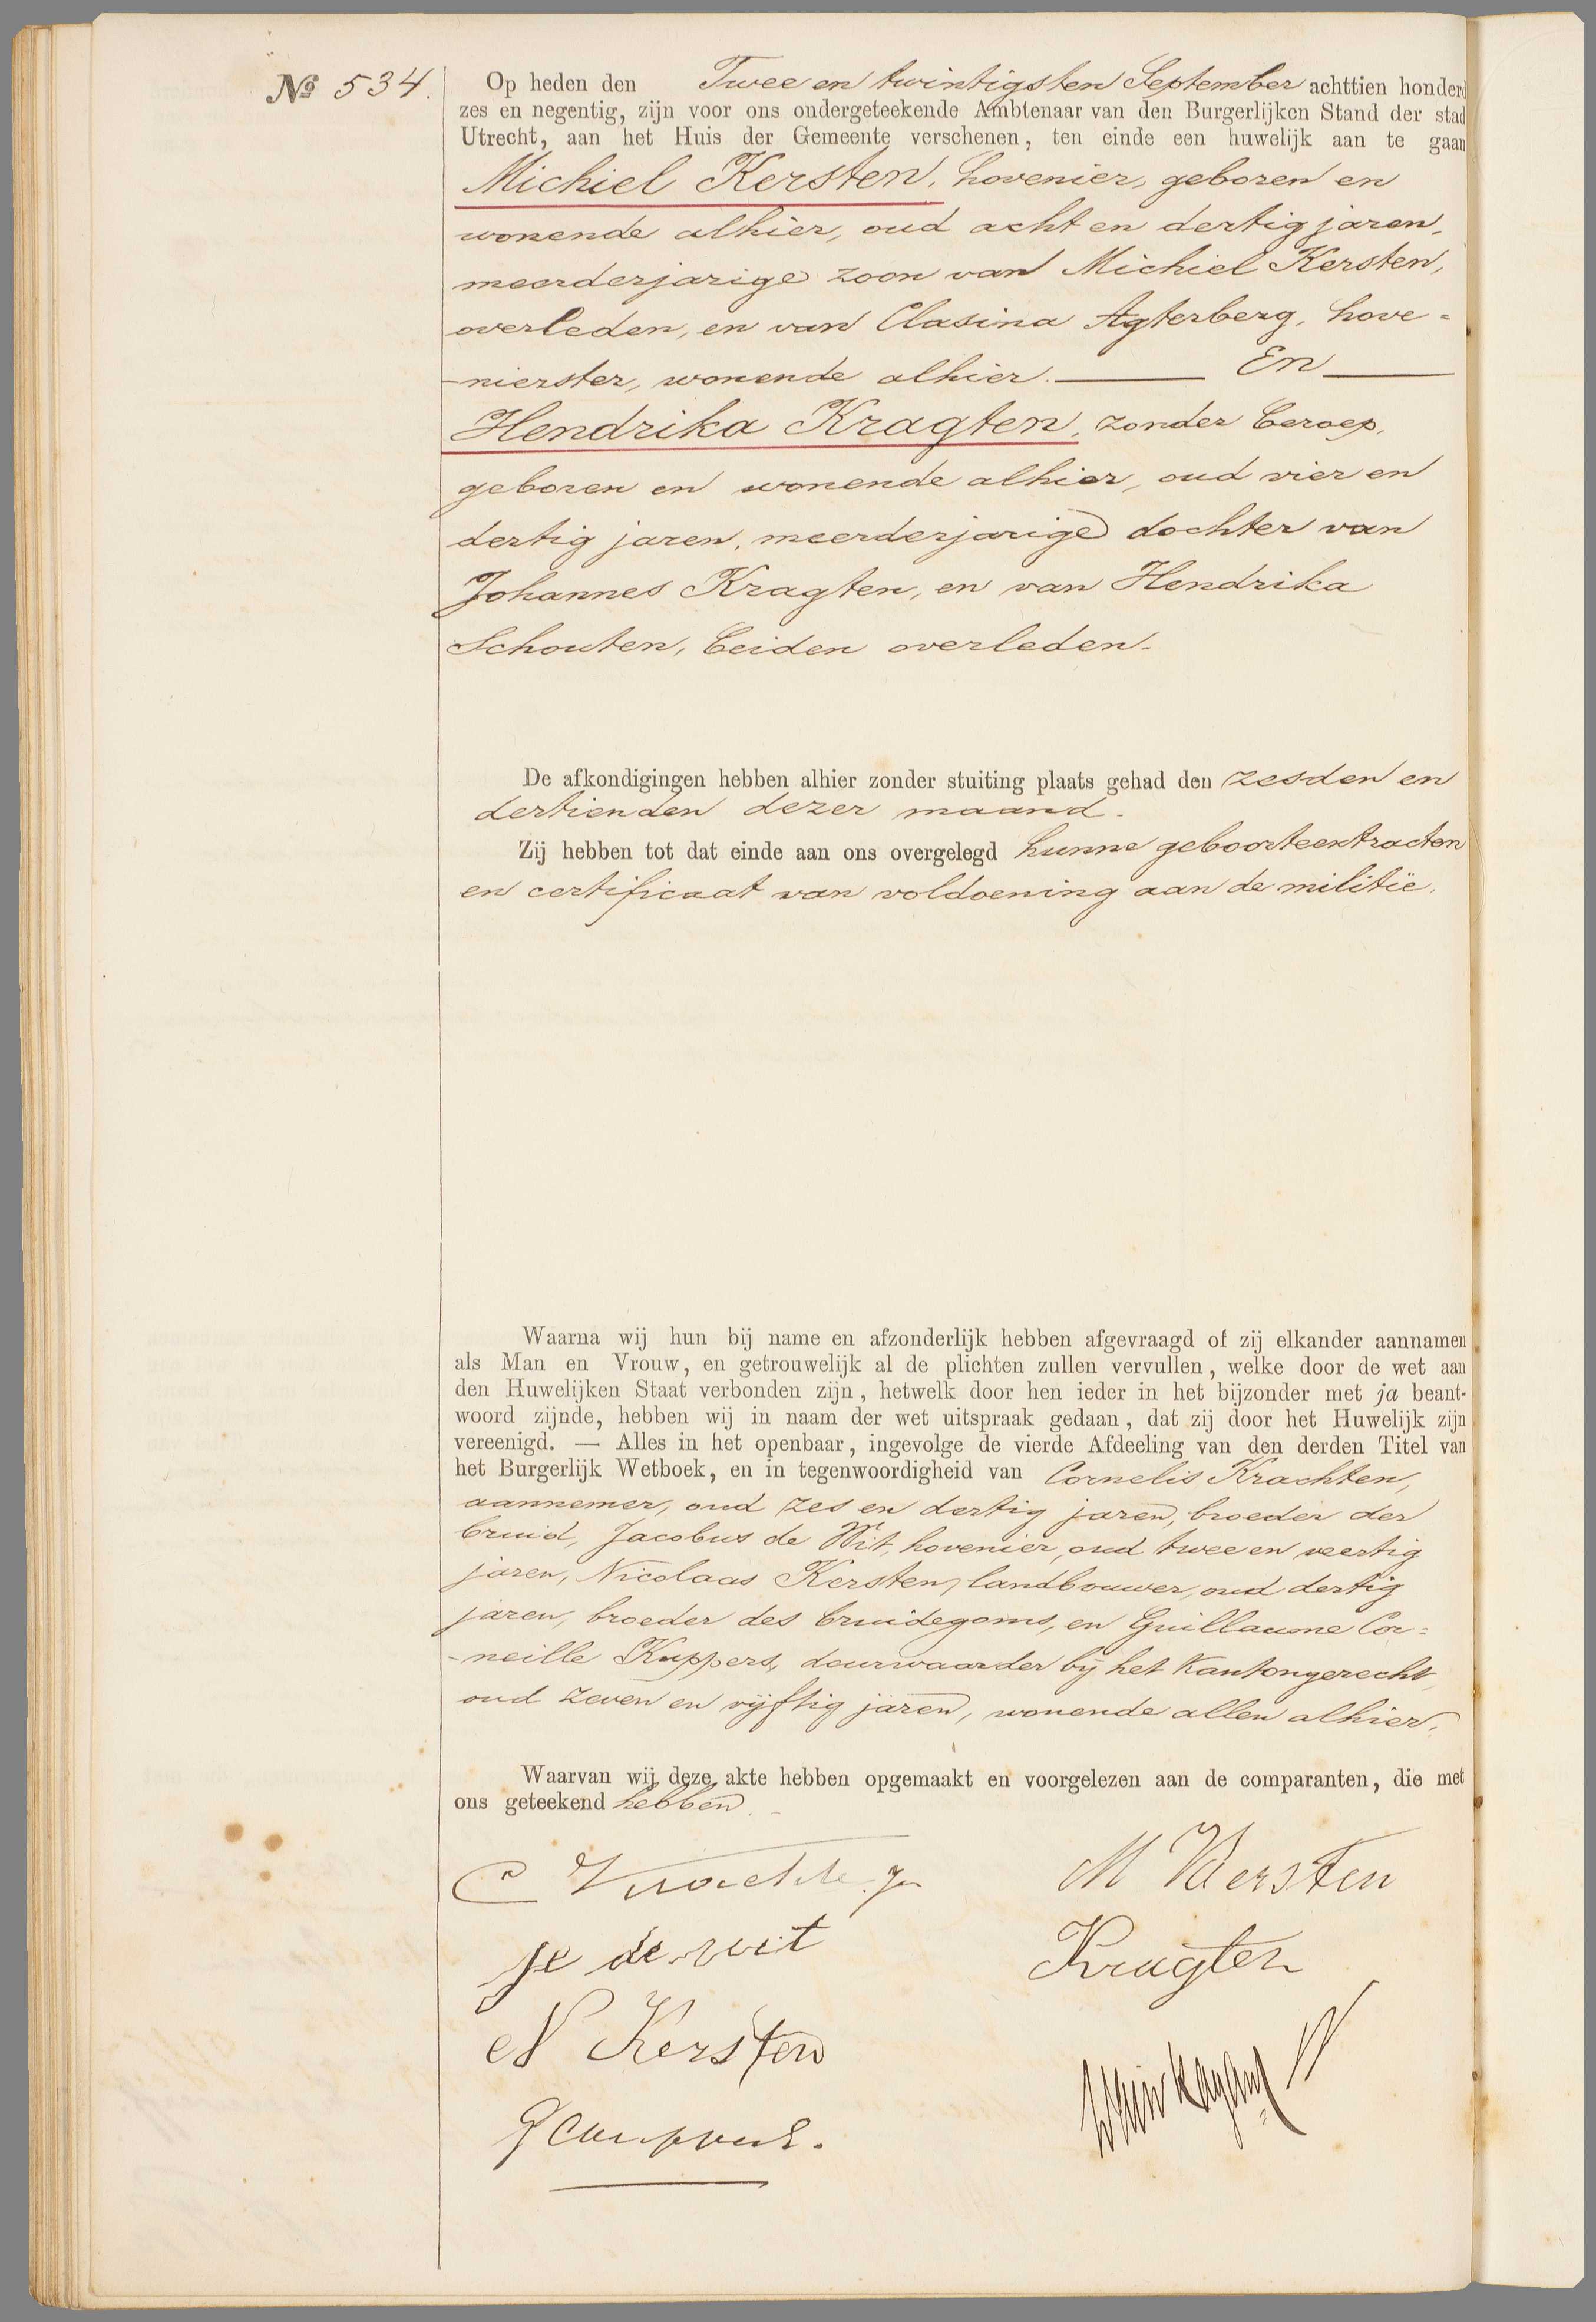 No 534.
Op heden den Twee en twintigsten September achttien honderd
zes en negentig, zijn voor ons ondergeteekende Ambtenaar van den Burgerlijken Stand der stad
Utrecht, aan het Huis der Gemeente verschenen, ten einde een huwelijk aan te gaan
Michiel Kersten, hovenier, geboren en
wonende alhier, oud acht en dertig jaren,
meerderjarige zoon van Michiel Kersten,
overleden, en van Clasina Agterberg, hove=
-nierster, wonende alhier. — En —
Hendrika Kragten, zonder beroep,
geboren en wonende alhier, oud vier en
dertig jaren, meerderjarige dochter van
Johannes Kragten, en van Hendrika
Schouten, beiden overleden.
De afkondigingen hebben alhier zonder stuiting plaats gehad den zesden en
dertienden dezer maand.
Zij hebben tot dat einde aan ons overgelegd hunne geboorteextracten
en certificaat van voldoening aan de militie.
Waarna wij hun bij name en afzonderlijk hebben afgevraagd of zij elkander aannamen
als Man en Vrouw, en getrouwelijk al de plichten zullen vervullen, welke door de wet aan
den Huwelijken Staat verbonden zijn, hetwelk door hen ieder in het bijzonder met ja beant-
woord zijnde, hebben wij in naam der wet uitspraak gedaan, dat zij door het Huwelijk zijn
vereenigd. — Alles in het openbaar, ingevolge de vierde Afdeeling van den derden Titel van
het Burgerlijk Wetboek, en in tegenwoordigheid van Cornelis Krachten,
aannemer, oud zes en dertig jaren, broeder der
bruid, Jacobus de Wit, hovenier, oud twee en veertig
jaren, Nicolaas Kersten, landbouwer, oud dertig
jaren, broeder des bruidegoms, en Guillaume Cor=
-neille Kuppers, deurwaarder bij het Kantongerecht,
oud zeven en vijftig jaren, wonende allen alhier.
Waarvan wij deze akte hebben opgemaakt en voorgelezen aan de comparanten, die met
ons geteekend hebben.
C
M Kersten
de wit
Kragten
N Kersten